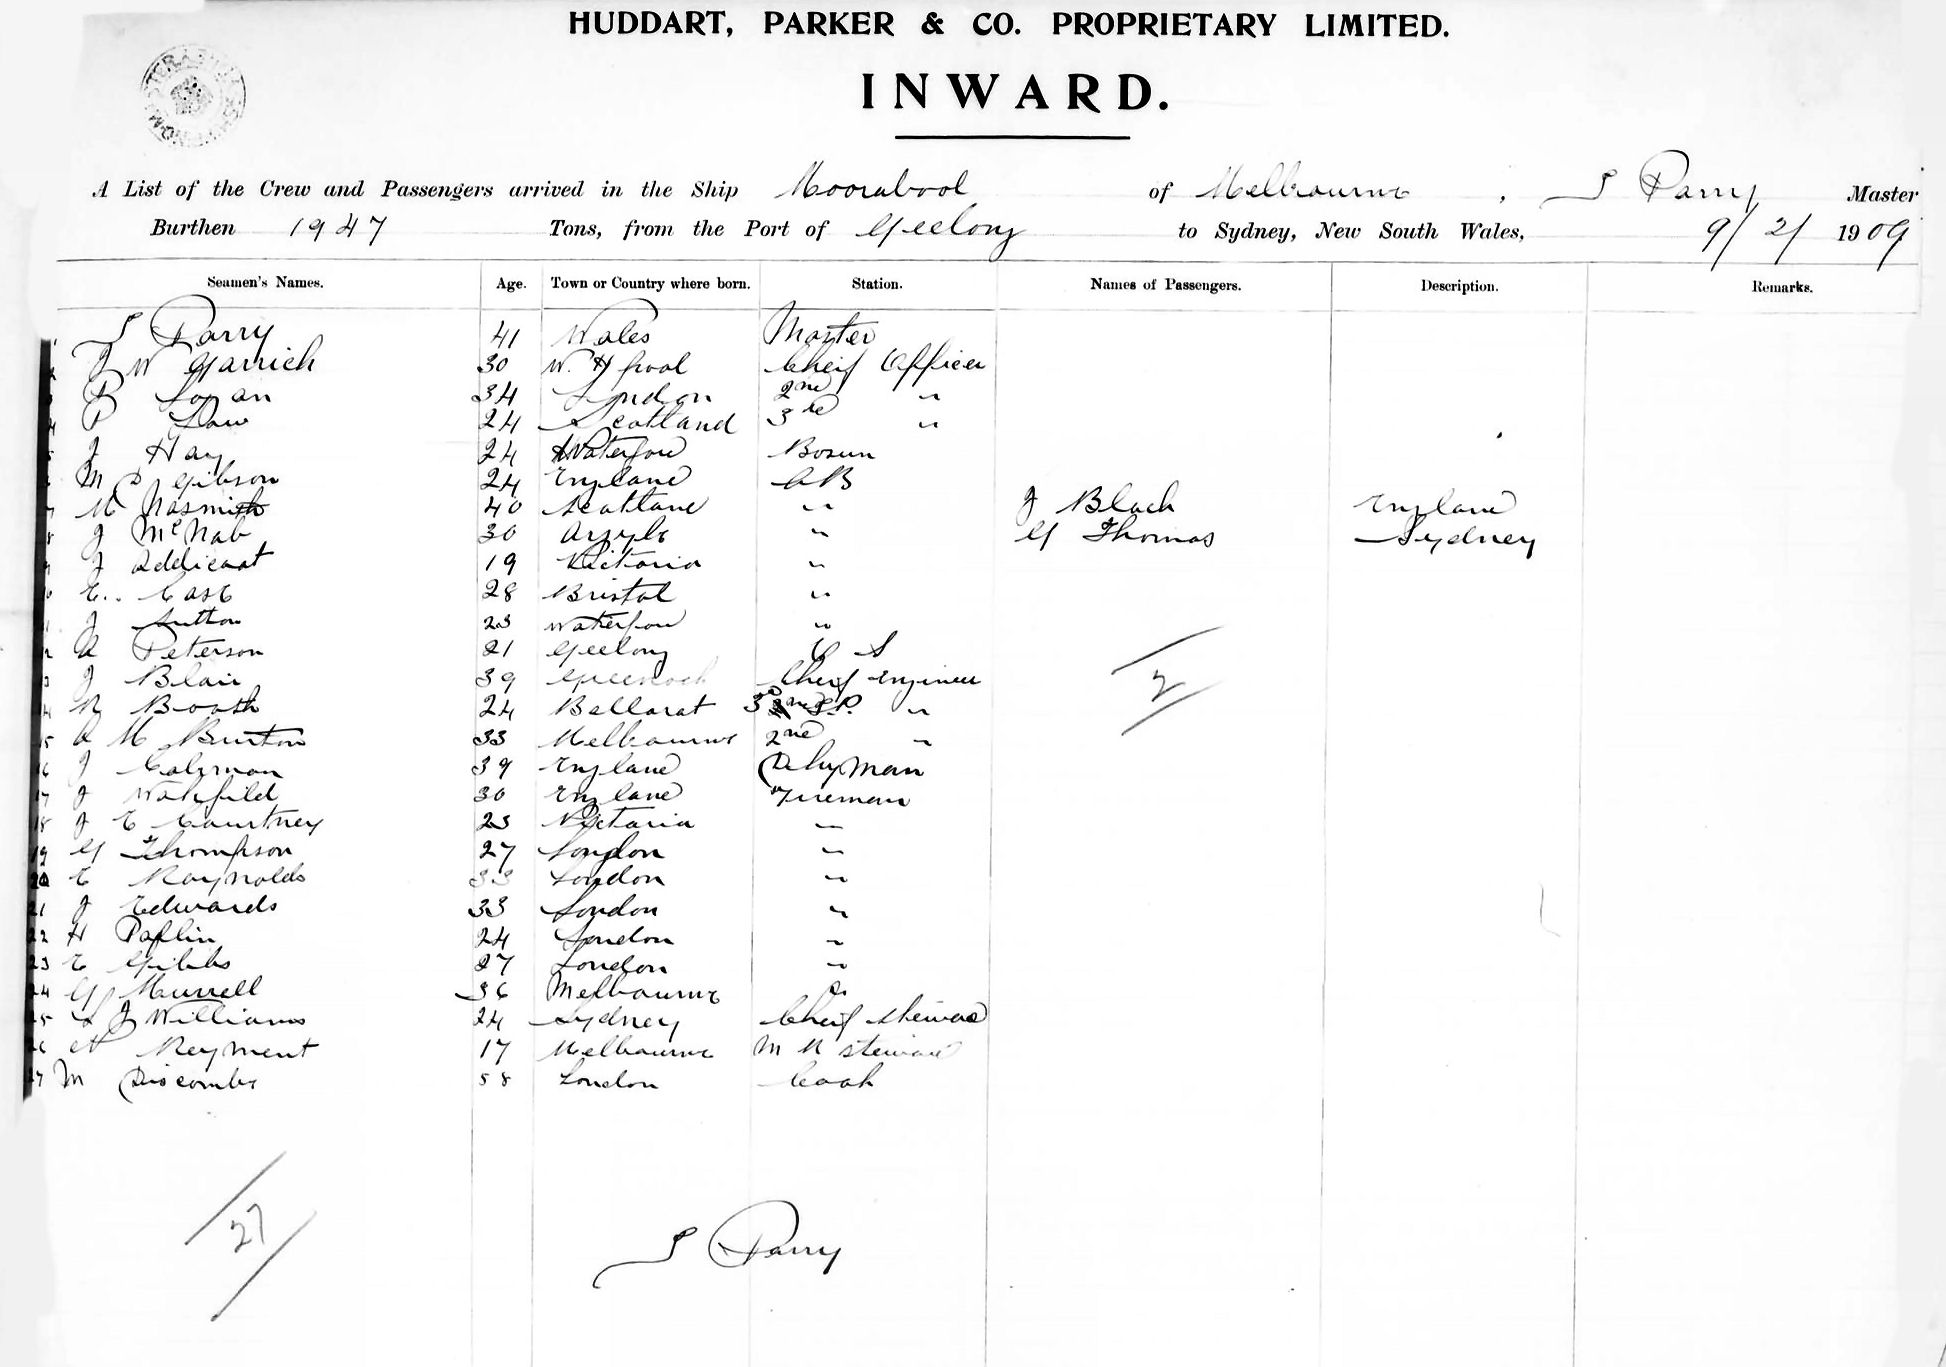 HUDDART, PARKER & CO. PROPRIETARY LIMITED.
INWARD.
A List of the Crew and Passengers arrived in the Ship Moorabool of Melbourne, S Parry Master
Burthen 1947 Tons, from the Port of Geelong to Sydney, New South Wales, 9/2/1909
Seamen's Names. Age. Town or Country where born. Station. Names of Passengers. Description. Remarks.
S Parry 41 Wales Master
J W Garrich 30 W. H pool Cheif Officer
Logan 34 London 2nd "
P Law 24 Scotland 3rd "
J Hay 24 Waterford Bosun
M D Gibson 24 England AB
M Nasmith 40 Scotland " J Black England
J McNab 30 Argyle " G Thomas Sydney
J Addicoat 19 Victoria "
E.. Case 28 Bristol "
J Sutton 23 Waterford "
A Peterson 21 Geelong O S
J Blair 39 Greenock Cheif Engineer
R Booth 24 Ballarat 3rd "
A M Burton 33 Melbourne 2nd "
J Calzman 39 England Dkyman
J Wakfield 30 England Fireman
J E Courtney 23 Victoria "
G Thompson 27 London "
E Raynolds 33 London "
J Edwards 33 London "
H Paflin 24 London "
E Gibbs 27 London "
G Murrell 36 Melbourne "
S J Williams 24 Sydney Cheif Steward
Reyment 17 Melbourne M R steward
M Discombe 58 London Cook
2
27
S Parry